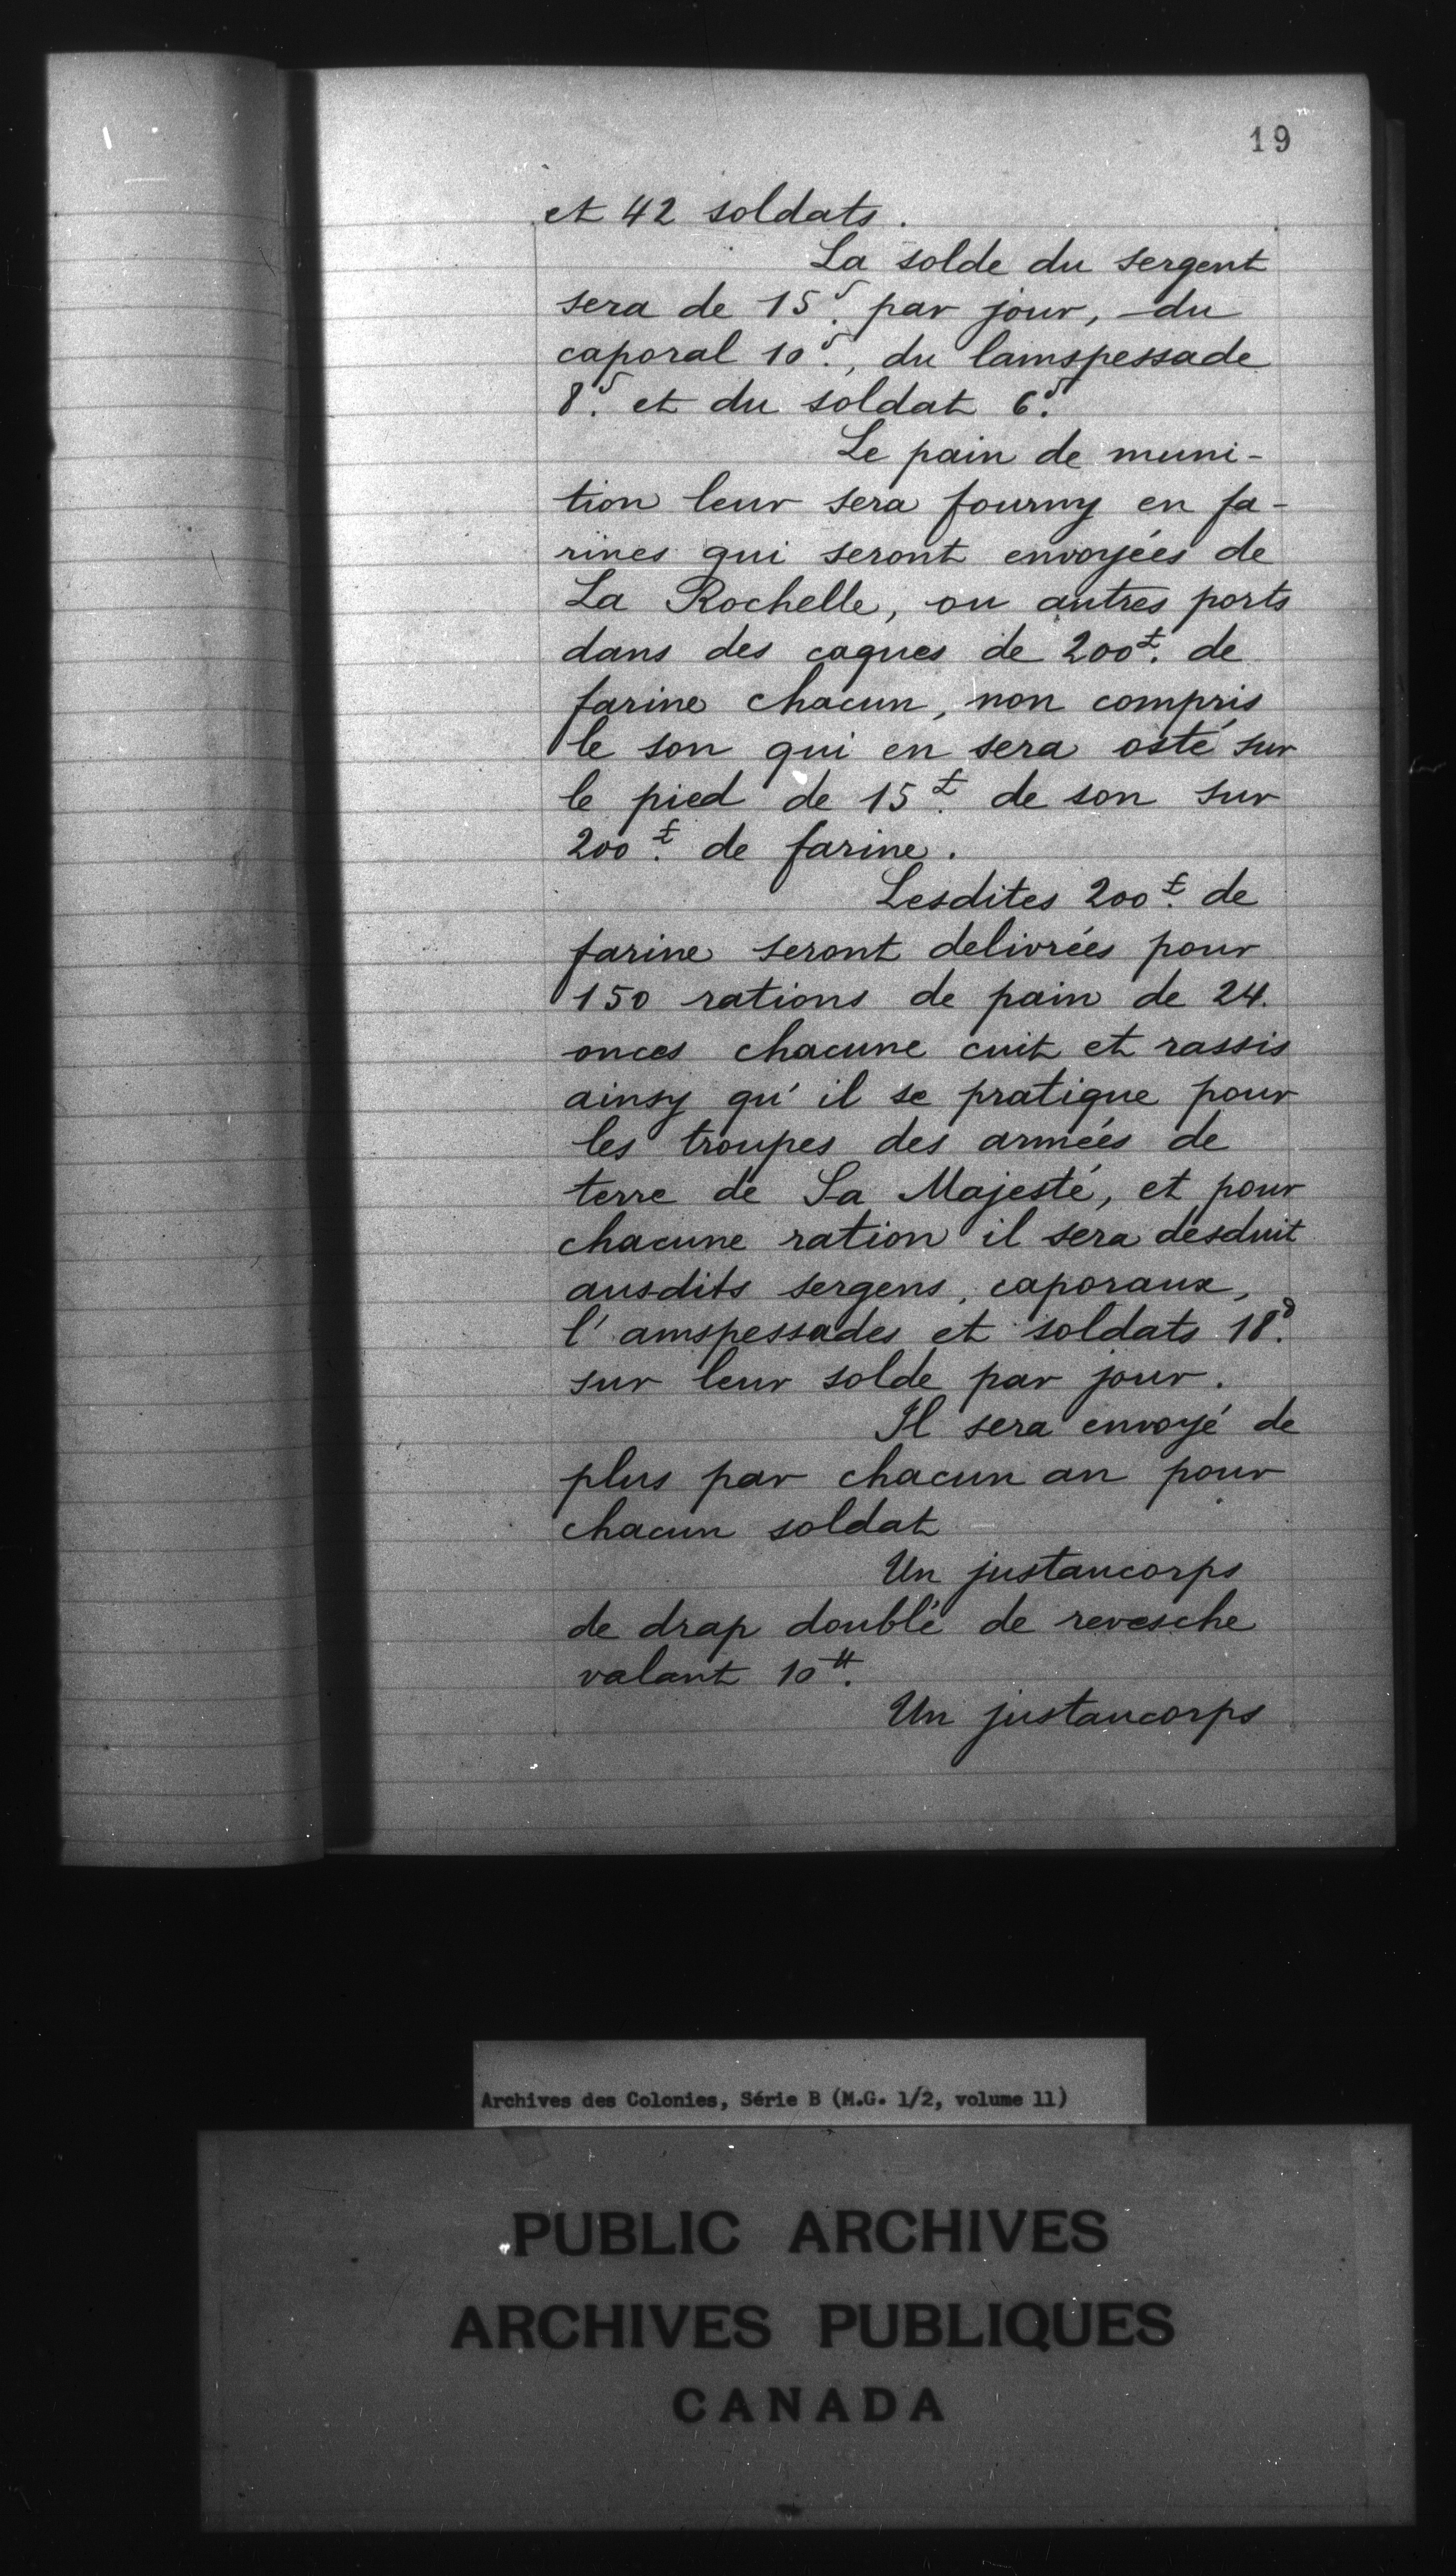 19
et 42 soldats.
La solde du sergent
sera de 15s. par jour, du
caporal 10s., du lamspessade
8s. et du soldat 6s.
Le pain de muni-
tion leur sera fourny en fa-
rines qui seront envoyées de
La Rochelle, ou autres ports
dans des caques de 200£. de
farine chacun, non compris
le son qui en sera osté sur
le pied de 15£. de son sur
200£. de farine.
Lesdites 200£. de
farine seront delivrées pour
150 rations de pain de 24.
onces chacune cuit et rassis
ainsy qu'il se pratique pour
les troupes des armées de
terre de Sa Majesté, et pour
chacune ration il sera desduit
ausdits sergens, caporaux,
l'amspessades et soldats 18d.
sur leur solde par jour.
Il sera envoyé de
plus par chacun an pour
chacun soldat
Un justaucorps
de drap doublé de revesche
valant 10tt.
Un justaucorps
Archives des Colonies, Série B (M.G. 1/2, volume 11)
PUBLIC ARCHIVES
ARCHIVES PUBLIQUES
CANADA